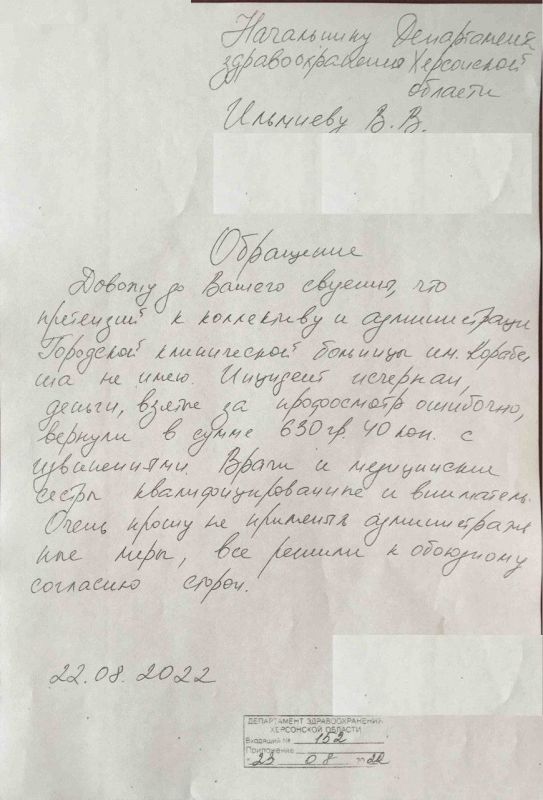 Начальнику Департамента
здравоохранения Херсонской
области
Ильмиеву В.В.
Обращение
Довожу до Вашего сведения, что
претензий к коллективу и администраци
Городской клинической больницы им. Корабе
ша не имею. Инцидент исчерпан,
деньги, взятые за профосмотр ошибочно,
вернули в сумме 630 гр. 40 коп. с
извинениями. Врачи и медицинские
сестры квалифицированные и вниматель
Очень прошу не применять административ
ные меры, все решили к обоюдному
согласию сторон.
22.08.2022
ДЕПАРТАМЕНТ ЗДРАВООХРАНЕНИЯ
ХЕРСОНСКОЙ ОБЛАСТИ
Входящий № 152
Приложение
"23" 08 2022